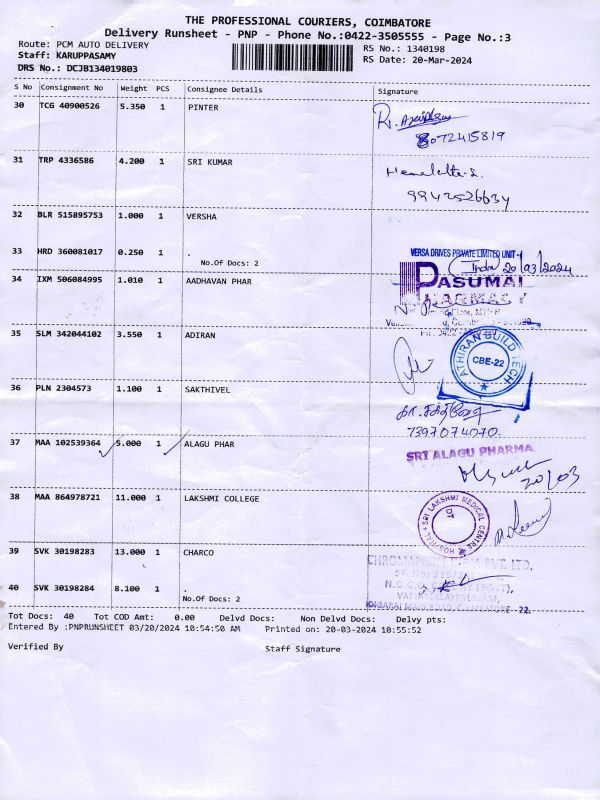 THE PROFESSIONAL COURIERS, COIMBATORE
Delivery Runsheet - PNP - Phone No.:0422-3505555 - Page No.:3
Route: PCM AUTO DELIVERY
RS No.: 1340198
Staff: KARUPPASAMY
RS Date: 20-Mar-2024
DRS No.: DCJB134019803
S No Consignment No Weight PCS Consignee Details Signature
30 TCG 40900526 5.350 1 PINTER
8072415819
31 TRP 4336586 4.200 1 SRI KUMAR
9942526634
32 BLR 515895753 1.000 1 VERSHA
33 HRD 360081017 0.250 1 .
No.Of Docs: 2
VERSA DRIVES PRIVATE LIMITED UNIT-
20/03/2024
34 IXM 506084995 1.010 1 AADHAVAN PHAR
PASUMAI
PHARMACY
35 SLM 342044102 3.550 1 ADIRAN
ATHIRAN BUILD TECH
CBE-22
36 PLN 2304573 1.100 1 SAKTHIVEL
7397074070.
37 MAA 102539364 5.000 1 ALAGU PHAR
SRI ALAGU PHARMA
20/03
38 MAA 864978721 11.000 1 LAKSHMI COLLEGE
SRI LAKSHMI MEDICAL CENTRE HOSPITAL
39 SVK 30198283 13.000 1 CHARCO
PVT. LTD.
40 SVK 30198284 8.100 1 .
No.Of Docs: 2
Tot Docs: 40 Tot COD Amt: 0.00 Delvd Docs: Non Delvd Docs: Delvy pts:
Entered By :PNPRUNSHEET 03/20/2024 10:54:50 AM Printed on: 20-03-2024 10:55:52
Verified By Staff Signature